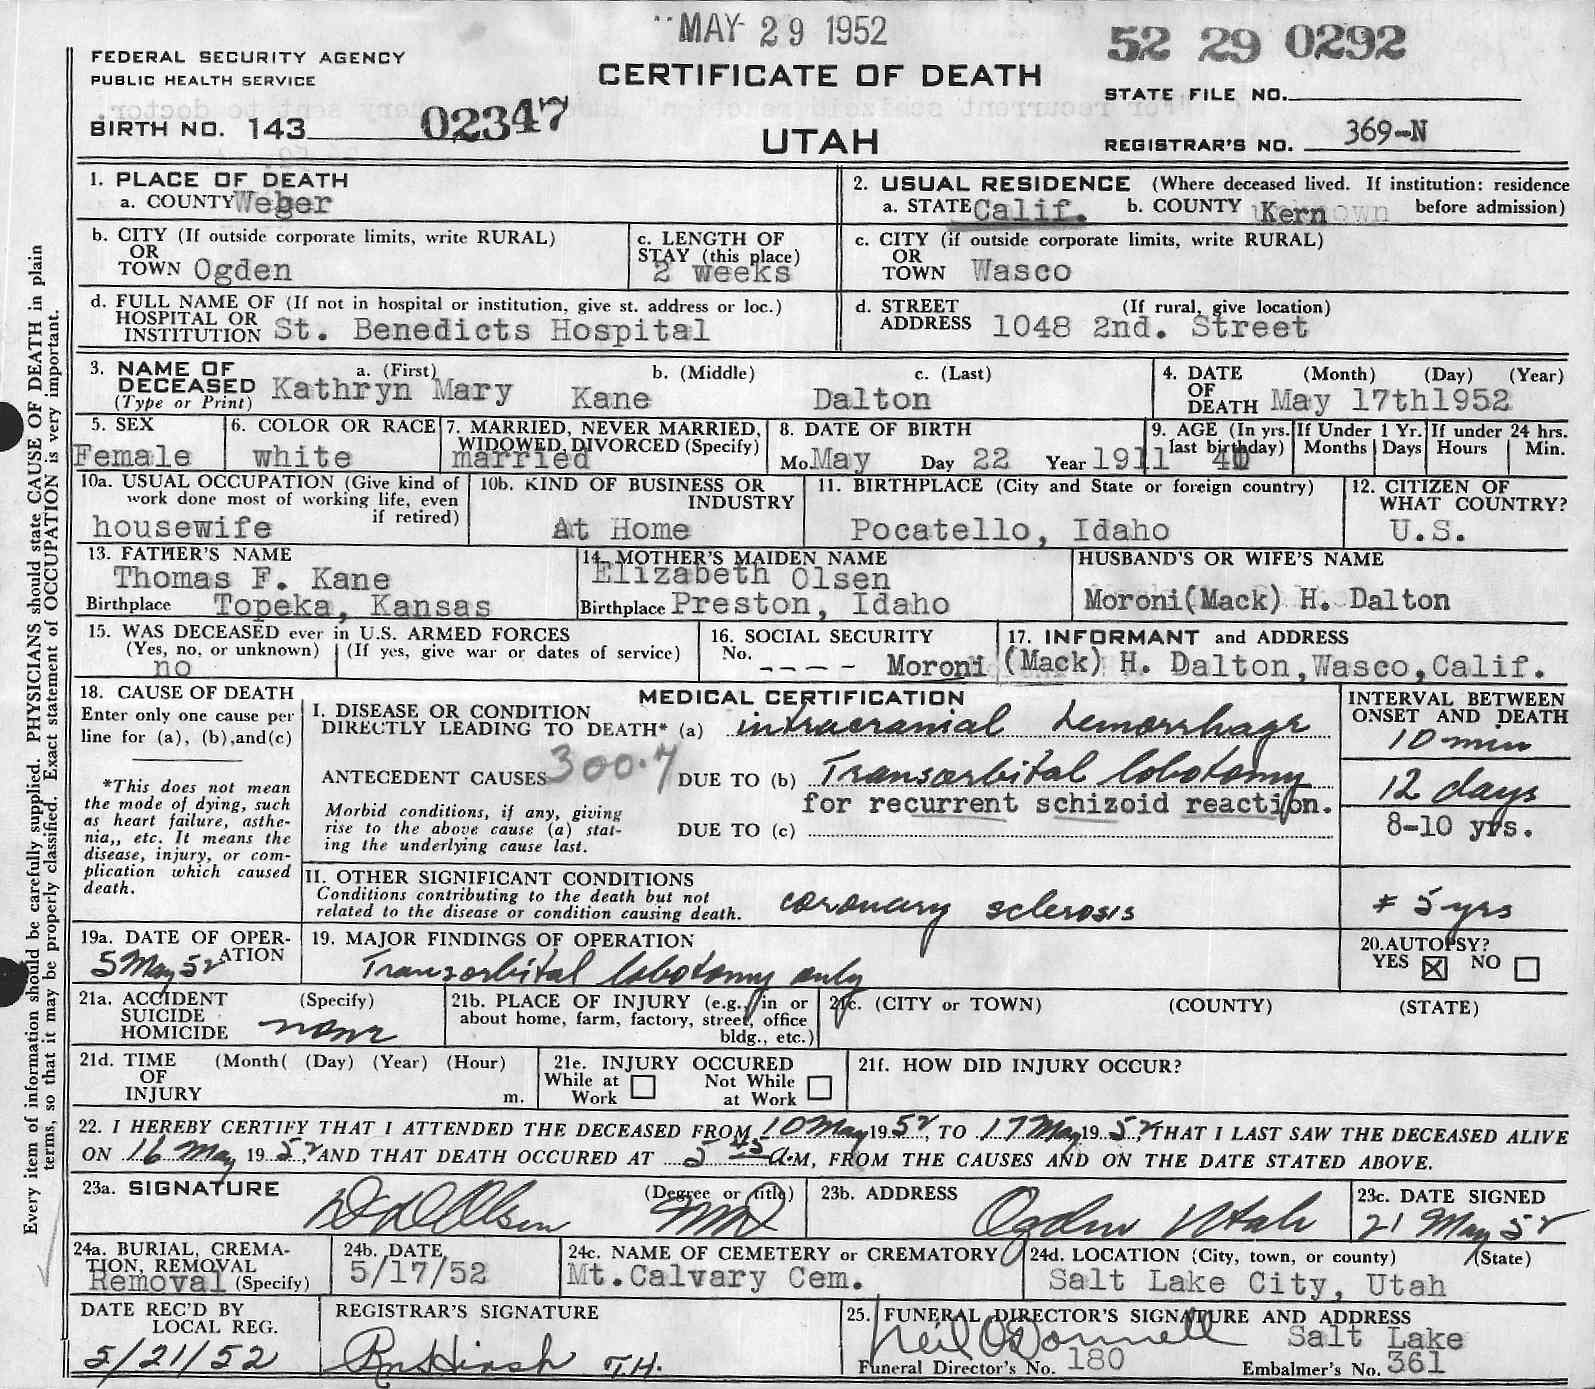 MAY 29 1952
52 29 0292
FEDERAL SECURITY AGENCY
PUBLIC HEALTH SERVICE
CERTIFICATE OF DEATH
STATE FILE NO.
BIRTH NO. 143 02347
UTAH
REGISTRAR'S NO. 369-N
Every item of information should be carefully supplied. PHYSICIANS should state CAUSE OF DEATH in plain
terms, so that it may be properly classified. Exact statement of OCCUPATION is very important.
1. PLACE OF DEATH
a. COUNTY Weber
2. USUAL RESIDENCE (Where deceased lived. If institution: residence
a. STATE Calif. b. COUNTY Kern before admission)
b. CITY (If outside corporate limits, write RURAL)
OR
TOWN Ogden
c. LENGTH OF
STAY (this place)
2 weeks
c. CITY (if outside corporate limits, write RURAL)
OR
TOWN Wasco
d. FULL NAME OF (If not in hospital or institution, give st. address or loc.)
HOSPITAL OR
INSTITUTION St. Benedicts Hospital
d. STREET (If rural, give location)
ADDRESS 1048 2nd. Street
3. NAME OF a. (First) b. (Middle) c. (Last)
DECEASED Kathryn Mary Kane Dalton
(Type or Print)
4. DATE (Month) (Day) (Year)
OF
DEATH May 17th1952
5. SEX
Female
6. COLOR OR RACE
white
7. MARRIED, NEVER MARRIED,
WIDOWED, DIVORCED (Specify)
married
8. DATE OF BIRTH
Mo. May Day 22 Year 1911
9. AGE (In yrs.
last birthday) 40
If Under 1 Yr.
Months Days
If under 24 hrs.
Hours Min.
10a. USUAL OCCUPATION (Give kind of
work done most of working life, even
if retired)
housewife
10b. KIND OF BUSINESS OR
INDUSTRY
At Home
11. BIRTHPLACE (City and State or foreign country)
Pocatello, Idaho
12. CITIZEN OF
WHAT COUNTRY?
U.S.
13. FATHER'S NAME
Thomas F. Kane
Birthplace Topeka, Kansas
14. MOTHER'S MAIDEN NAME
Elizabeth Olsen
Birthplace Preston, Idaho
HUSBAND'S OR WIFE'S NAME
Moroni(Mack) H. Dalton
15. WAS DECEASED ever in U.S. ARMED FORCES
(Yes, no, or unknown) (If yes, give war or dates of service)
no
16. SOCIAL SECURITY
No. - - - -
17. INFORMANT and ADDRESS
Moroni (Mack) H. Dalton,Wasco,Calif.
18. CAUSE OF DEATH
Enter only one cause per
line for (a), (b),and(c)
*This does not mean
the mode of dying, such
as heart failure, asthe-
nia,, etc. It means the
disease, injury, or com-
plication which caused
death.
MEDICAL CERTIFICATION
I. DISEASE OR CONDITION
DIRECTLY LEADING TO DEATH* (a) intracranial hemorrhage
ANTECEDENT CAUSES 300.7 DUE TO (b) Transorbital lobotomy
for recurrent schizoid reaction.
Morbid conditions, if any, giving
rise to the above cause (a) stat-
ing the underlying cause last.
DUE TO (c)
INTERVAL BETWEEN
ONSET AND DEATH
10 min
12 days
8-10 yrs.
II. OTHER SIGNIFICANT CONDITIONS
Conditions contributing to the death but not
related to the disease or condition causing death. coronary sclerosis
5 yrs
19a. DATE OF OPER-
ATION
5 May 52
19. MAJOR FINDINGS OF OPERATION
Transorbital lobotomy only
20.AUTOPSY?
YES NO
21a. ACCIDENT (Specify)
SUICIDE
HOMICIDE none
21b. PLACE OF INJURY (e.g., in or
about home, farm, factory, street, office
bldg., etc.)
21c. (CITY or TOWN) (COUNTY) (STATE)
21d. TIME (Month( (Day) (Year) (Hour)
OF
INJURY m.
21e. INJURY OCCURED
While at Not While
Work at Work
21f. HOW DID INJURY OCCUR?
22. I HEREBY CERTIFY THAT I ATTENDED THE DECEASED FROM 10 May 1952, TO 17 May 1952, THAT I LAST SAW THE DECEASED ALIVE
ON 16 May 1952, AND THAT DEATH OCCURED AT 5 45 A.M, FROM THE CAUSES AND ON THE DATE STATED ABOVE.
23a. SIGNATURE (Degree or title)
Olsen MD
23b. ADDRESS
Ogden Utah
23c. DATE SIGNED
21 May 52
24a. BURIAL, CREMA-
TION, REMOVAL
Removal (Specify)
24b. DATE
5/17/52
24c. NAME OF CEMETERY or CREMATORY
Mt.Calvary Cem.
24d. LOCATION (City, town, or county) (State)
Salt Lake City, Utah
DATE REC'D BY
LOCAL REG.
5/21/52
REGISTRAR'S SIGNATURE
T.H.
25. FUNERAL DIRECTOR'S SIGNATURE AND ADDRESS
Neil O'Donnell Salt Lake
Funeral Director's No. 180 Embalmer's No. 361